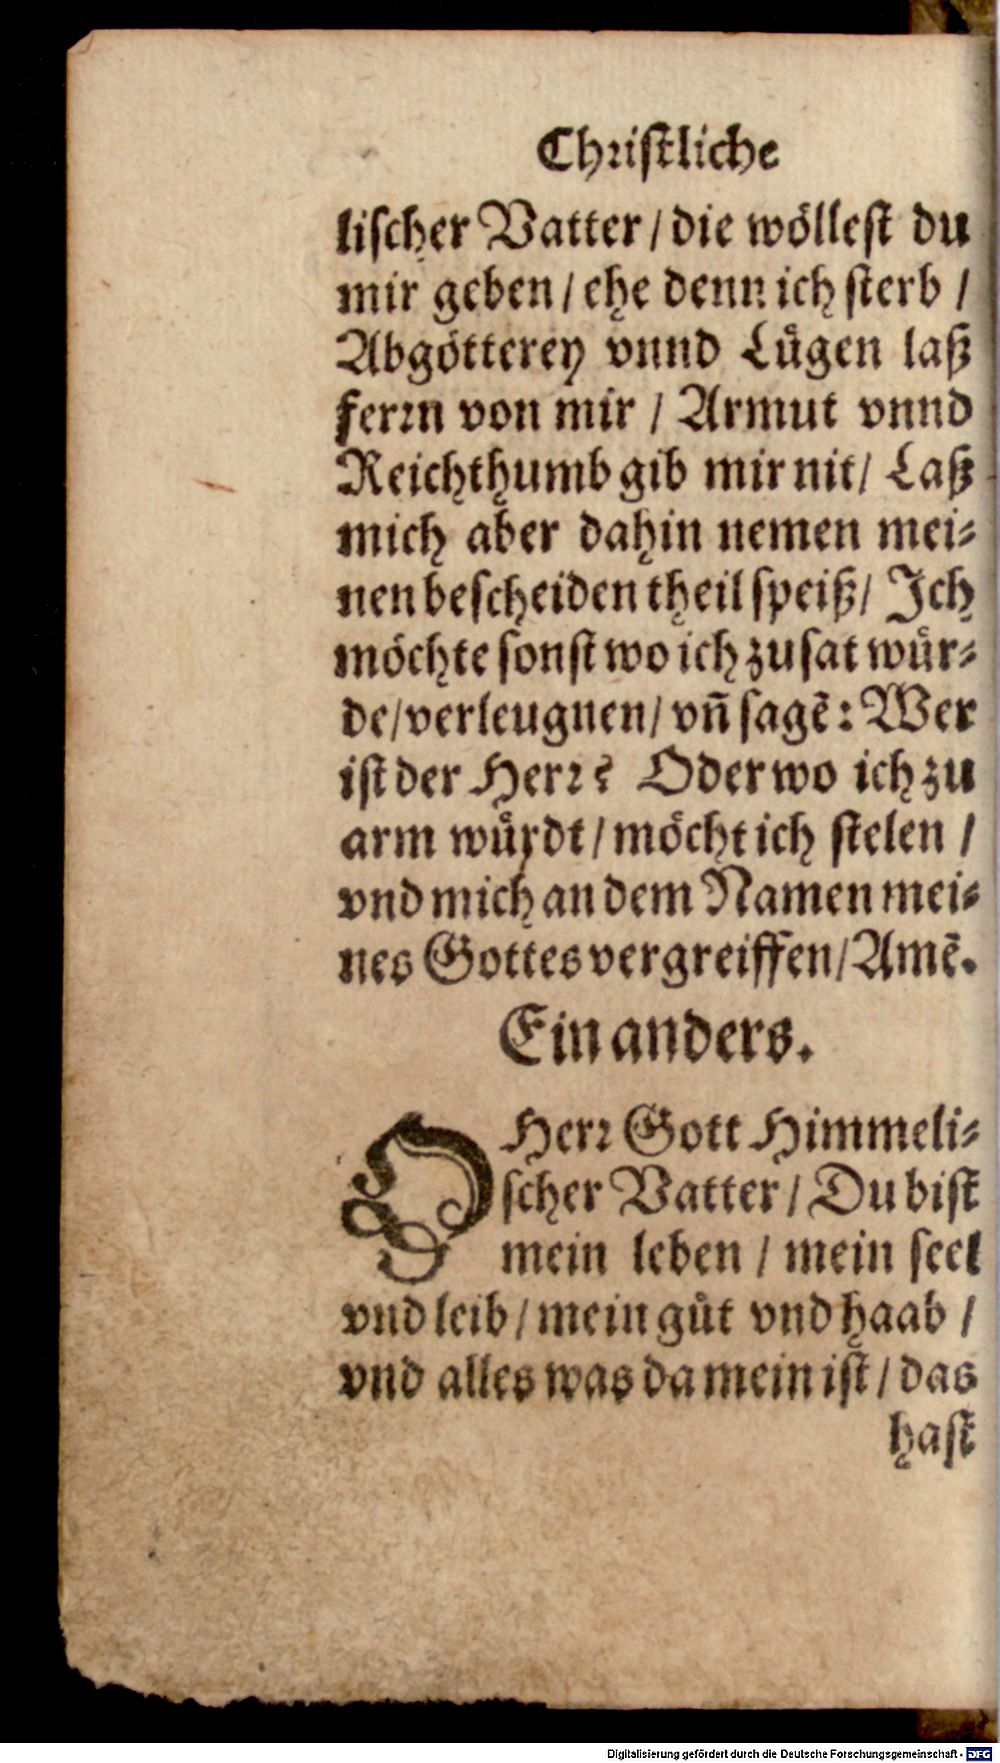 Chriſtliche
liſcher Vatter / die woͤlleſt du
mir geben / ehe denn ich ſterb /
Abgoͤtterey vnnd Luͤgen laß
ferꝛn von mir / Armut vnnd
Reichthumb gib mir nit / Laß
mich aber dahin nemen mei⸗
nen beſcheiden theil ſpeiß / Ich
moͤchte ſonſt wo ich zu ſat wuͤr⸗
de / verleugnen / vñ ſagẽ: Wer
iſt der Herꝛ? Oder wo ich zu
arm wuͤrdt / moͤcht ich ſtelen /
vnd mich an dem Namen mei⸗
nes Gottes vergreiffen / Amẽ.
Ein anders.
O Herꝛ Gott Himmeli⸗
ſcher Vatter / Du biſt
mein leben / mein ſeel
vnd leib / mein guͤt vnd haab /
vnd alles was da mein iſt / das
haſt
Digitalisierung gefördert durch die Deutsche Forschungsgemeinschaft - DFG